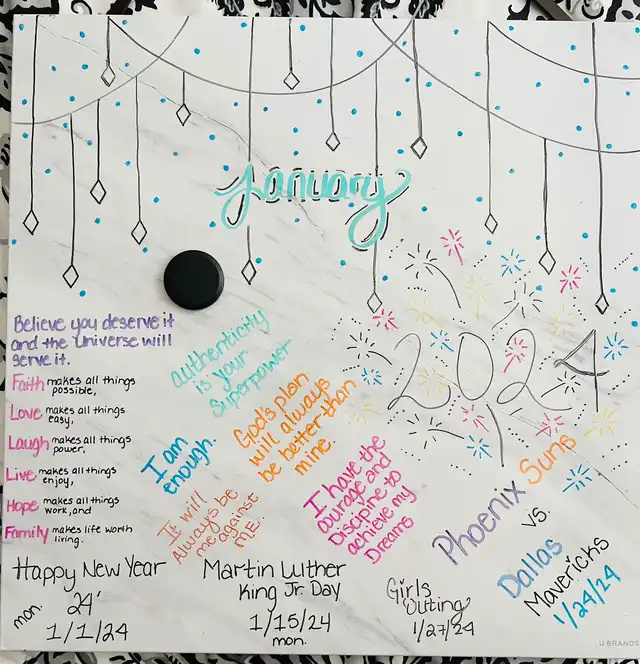 January
2024
Believe you deserve it
and the Universe will
serve it.
Faith makes all things
possible,
Love makes all things
easy,
Laugh makes all things
power,
Live makes all things
enjoy,
Hope makes all things
work, and
Family makes life worth
living.
authenticity
is your
Superpower
I am
enough.
God's plan
will always
be better than
mine.
It will
Always be
me against
ME.
I have the
courage and
Discipline to
achieve my
Dreams
Phoenix Suns
vs.
Dallas
Mavericks
1/24/24
Happy New Year
24'
mon. 1/1/24
Martin Luther
King Jr. Day
1/15/24
mon.
Girls
Outing
1/27/24
U BRANDS